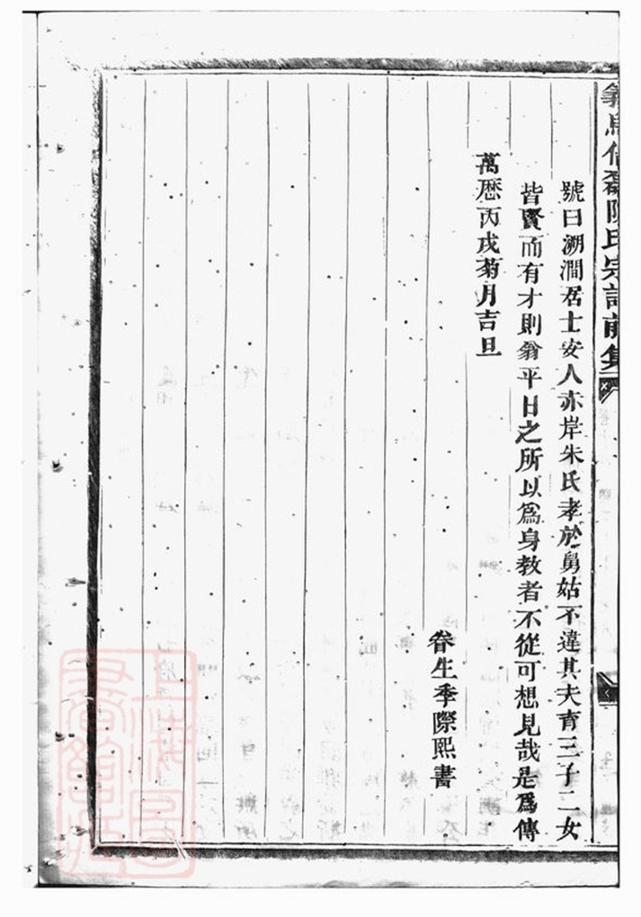 陳氏宗譜前集
號曰溯澗居士安人赤岸朱氏孝於舅姑不違其夫育三子二女
皆賢而有才則翁平日之所以爲身教者不從可想見哉是爲傳
萬歷丙戌菊月吉旦
眷生季際熙書